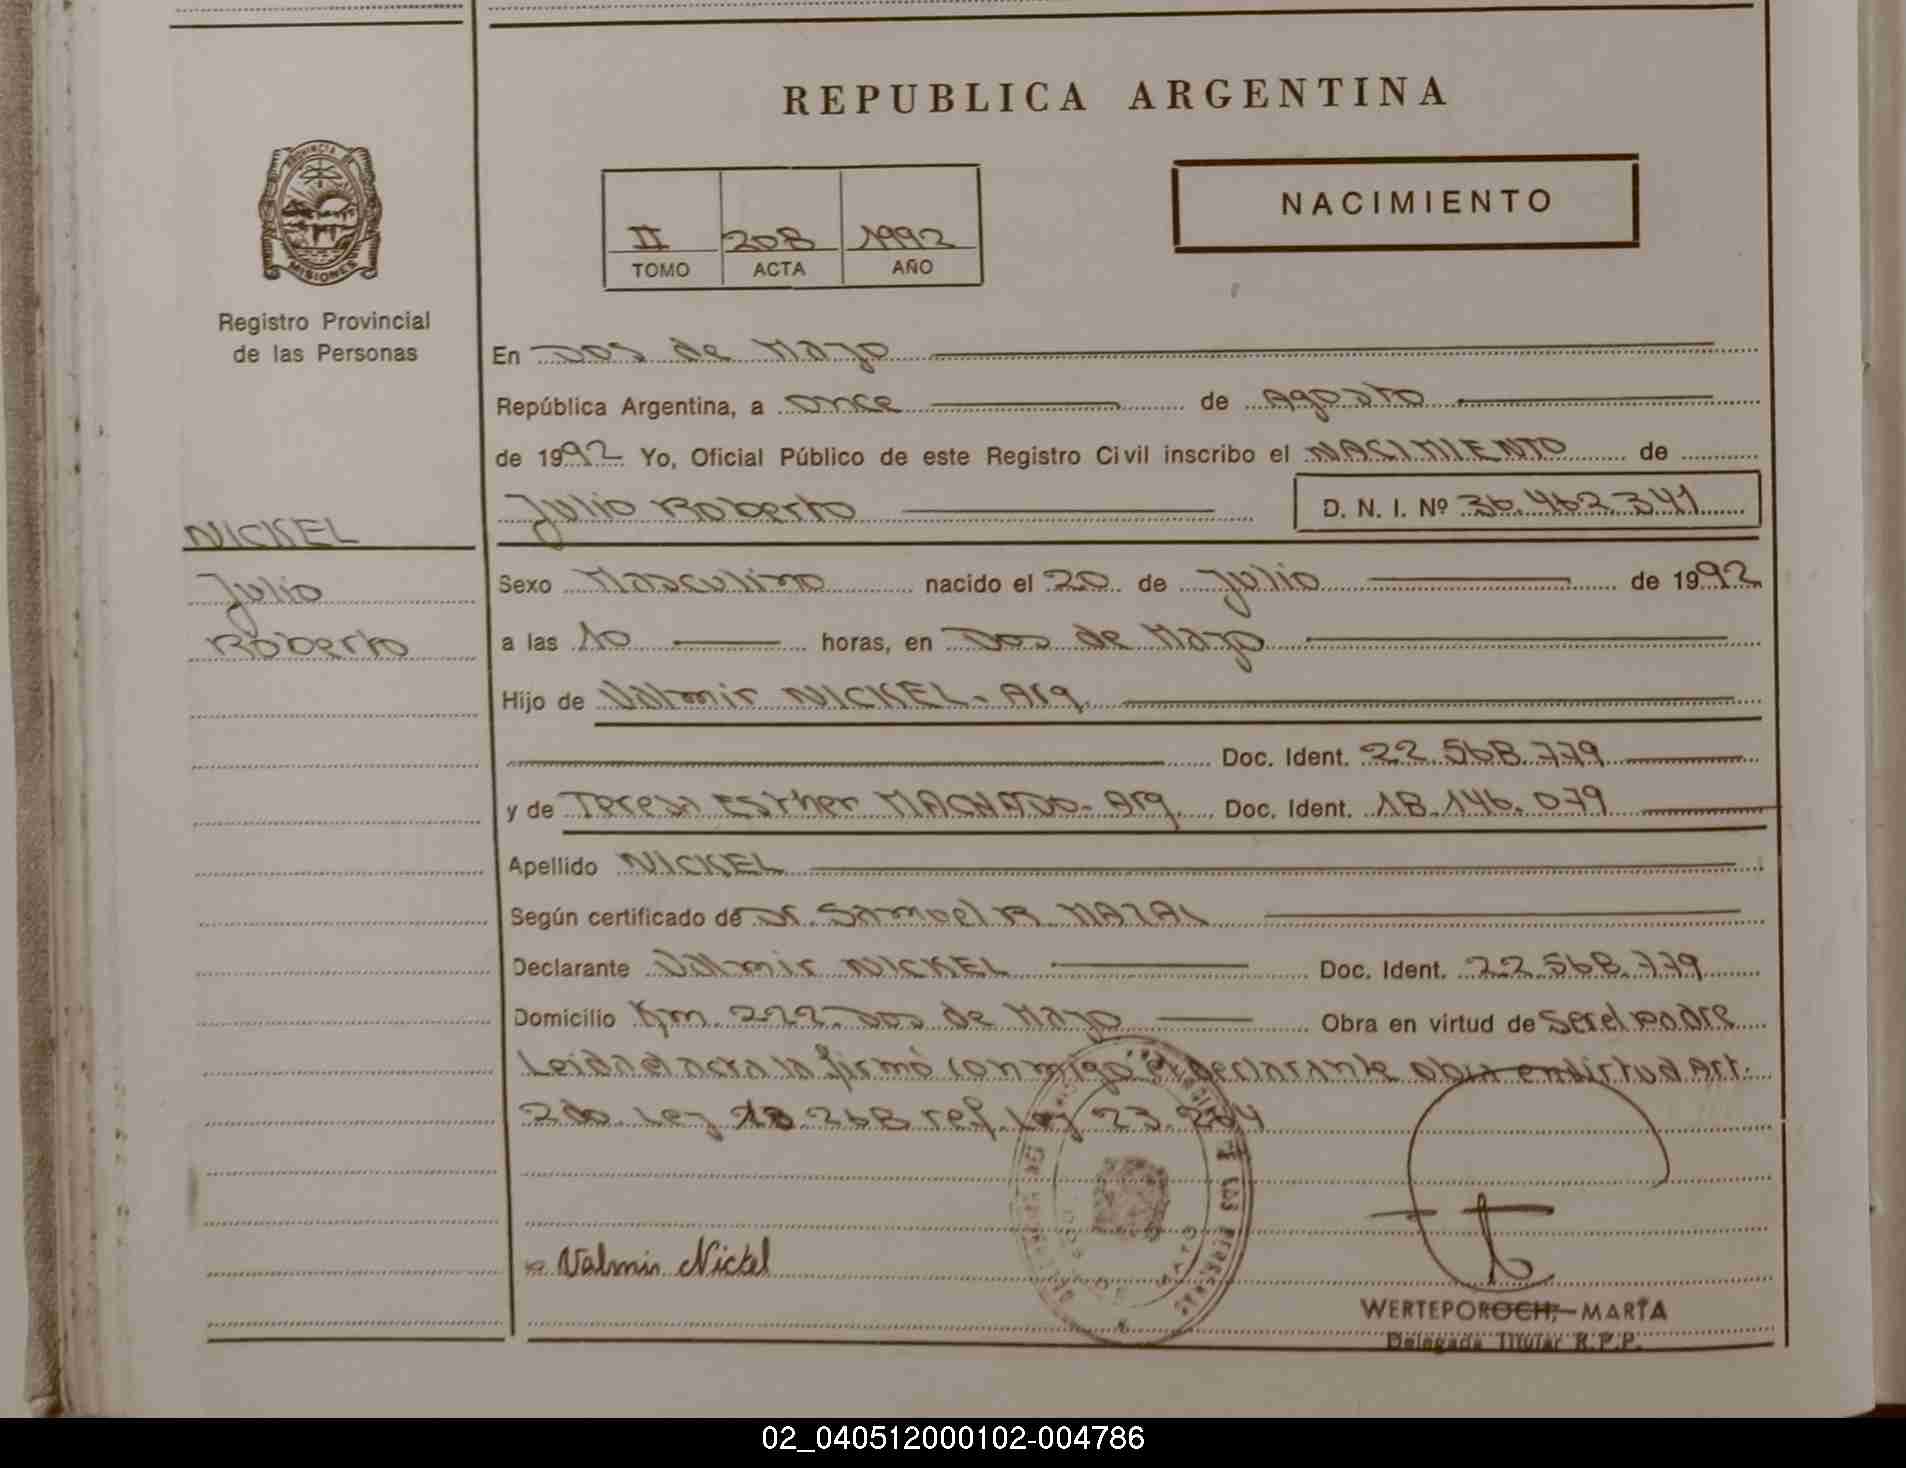 REPUBLICA ARGENTINA
NACIMIENTO
II 208 1992
TOMO ACTA AÑO
PROVINCIA DE
MISIONES
Registro Provincial
de las Personas
NICKEL
Julio
Roberto
En Dos de Mayo
República Argentina, a once de Agosto
de 1992 Yo, Oficial Público de este Registro Civil inscribo el NACIMIENTO de
Julio Roberto D. N. I. Nº 36.462.341
Sexo Masculino nacido el 20 de Julio de 1992
a las 10 horas, en Dos de Mayo
Hijo de Valmir NICKEL - Arg.
Doc. Ident. 22.568.779
y de Teresa Esther MACHADO - Arg. Doc. Ident. 18.146.079
Apellido NICKEL
Según certificado de Dr. Samuel R. MAZAL
Declarante Valmir NICKEL Doc. Ident. 22.568.779
Domicilio Km. 222 - Dos de Mayo Obra en virtud de ser el padre
Leida el acta la firmó conmigo el declarante obra en virtud Art.
2do. Ley 18.268 ref. Ley 23.264
Valmir Nickel
DE LAS PERSONAS
DOS DE MAYO
WERTEPOROCH, MARTA
Delegada Titular R.P.P.
02_040512000102-004786